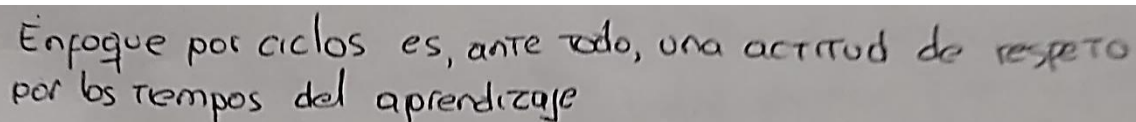 Enfoque por ciclos es, ante todo, una actitud de respeto
por los tempos del aprendizaje